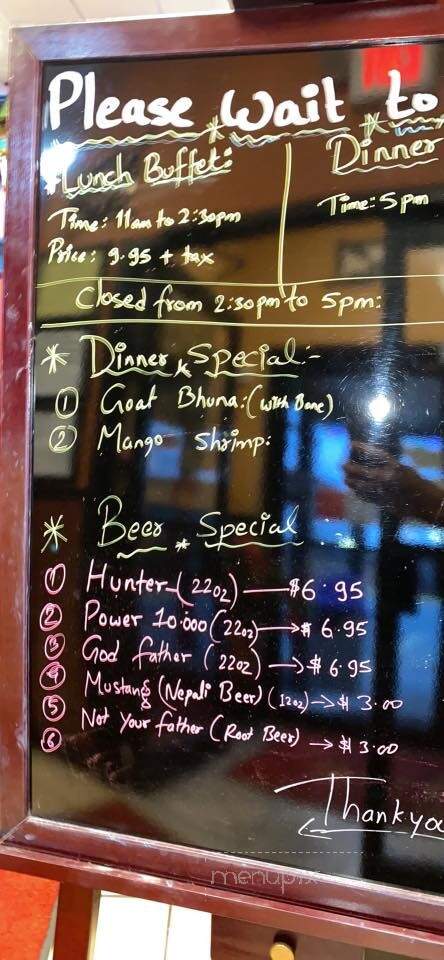 Please Wait to
Lunch Buffet:
Time: 11am to 2:30pm
Price: 9.95 + tax
Dinner
Time: 5pm
Closed from 2:30pm to 5pm:
* Dinner Special:-
① Goat Bhuna: (with Bone)
② Mango Shrimp:
* Beer Special
① Hunter-(22oz) —— $6.95
② Power 10.000 (22oz) —> $ 6.95
③ God father (22oz) —> $ 6.95
④ Mustang (Nepali Beer) (12oz) —> $ 3.00
⑤ Not Your father (Root Beer) —> $ 3.00
⑥
Thankyo
menupix